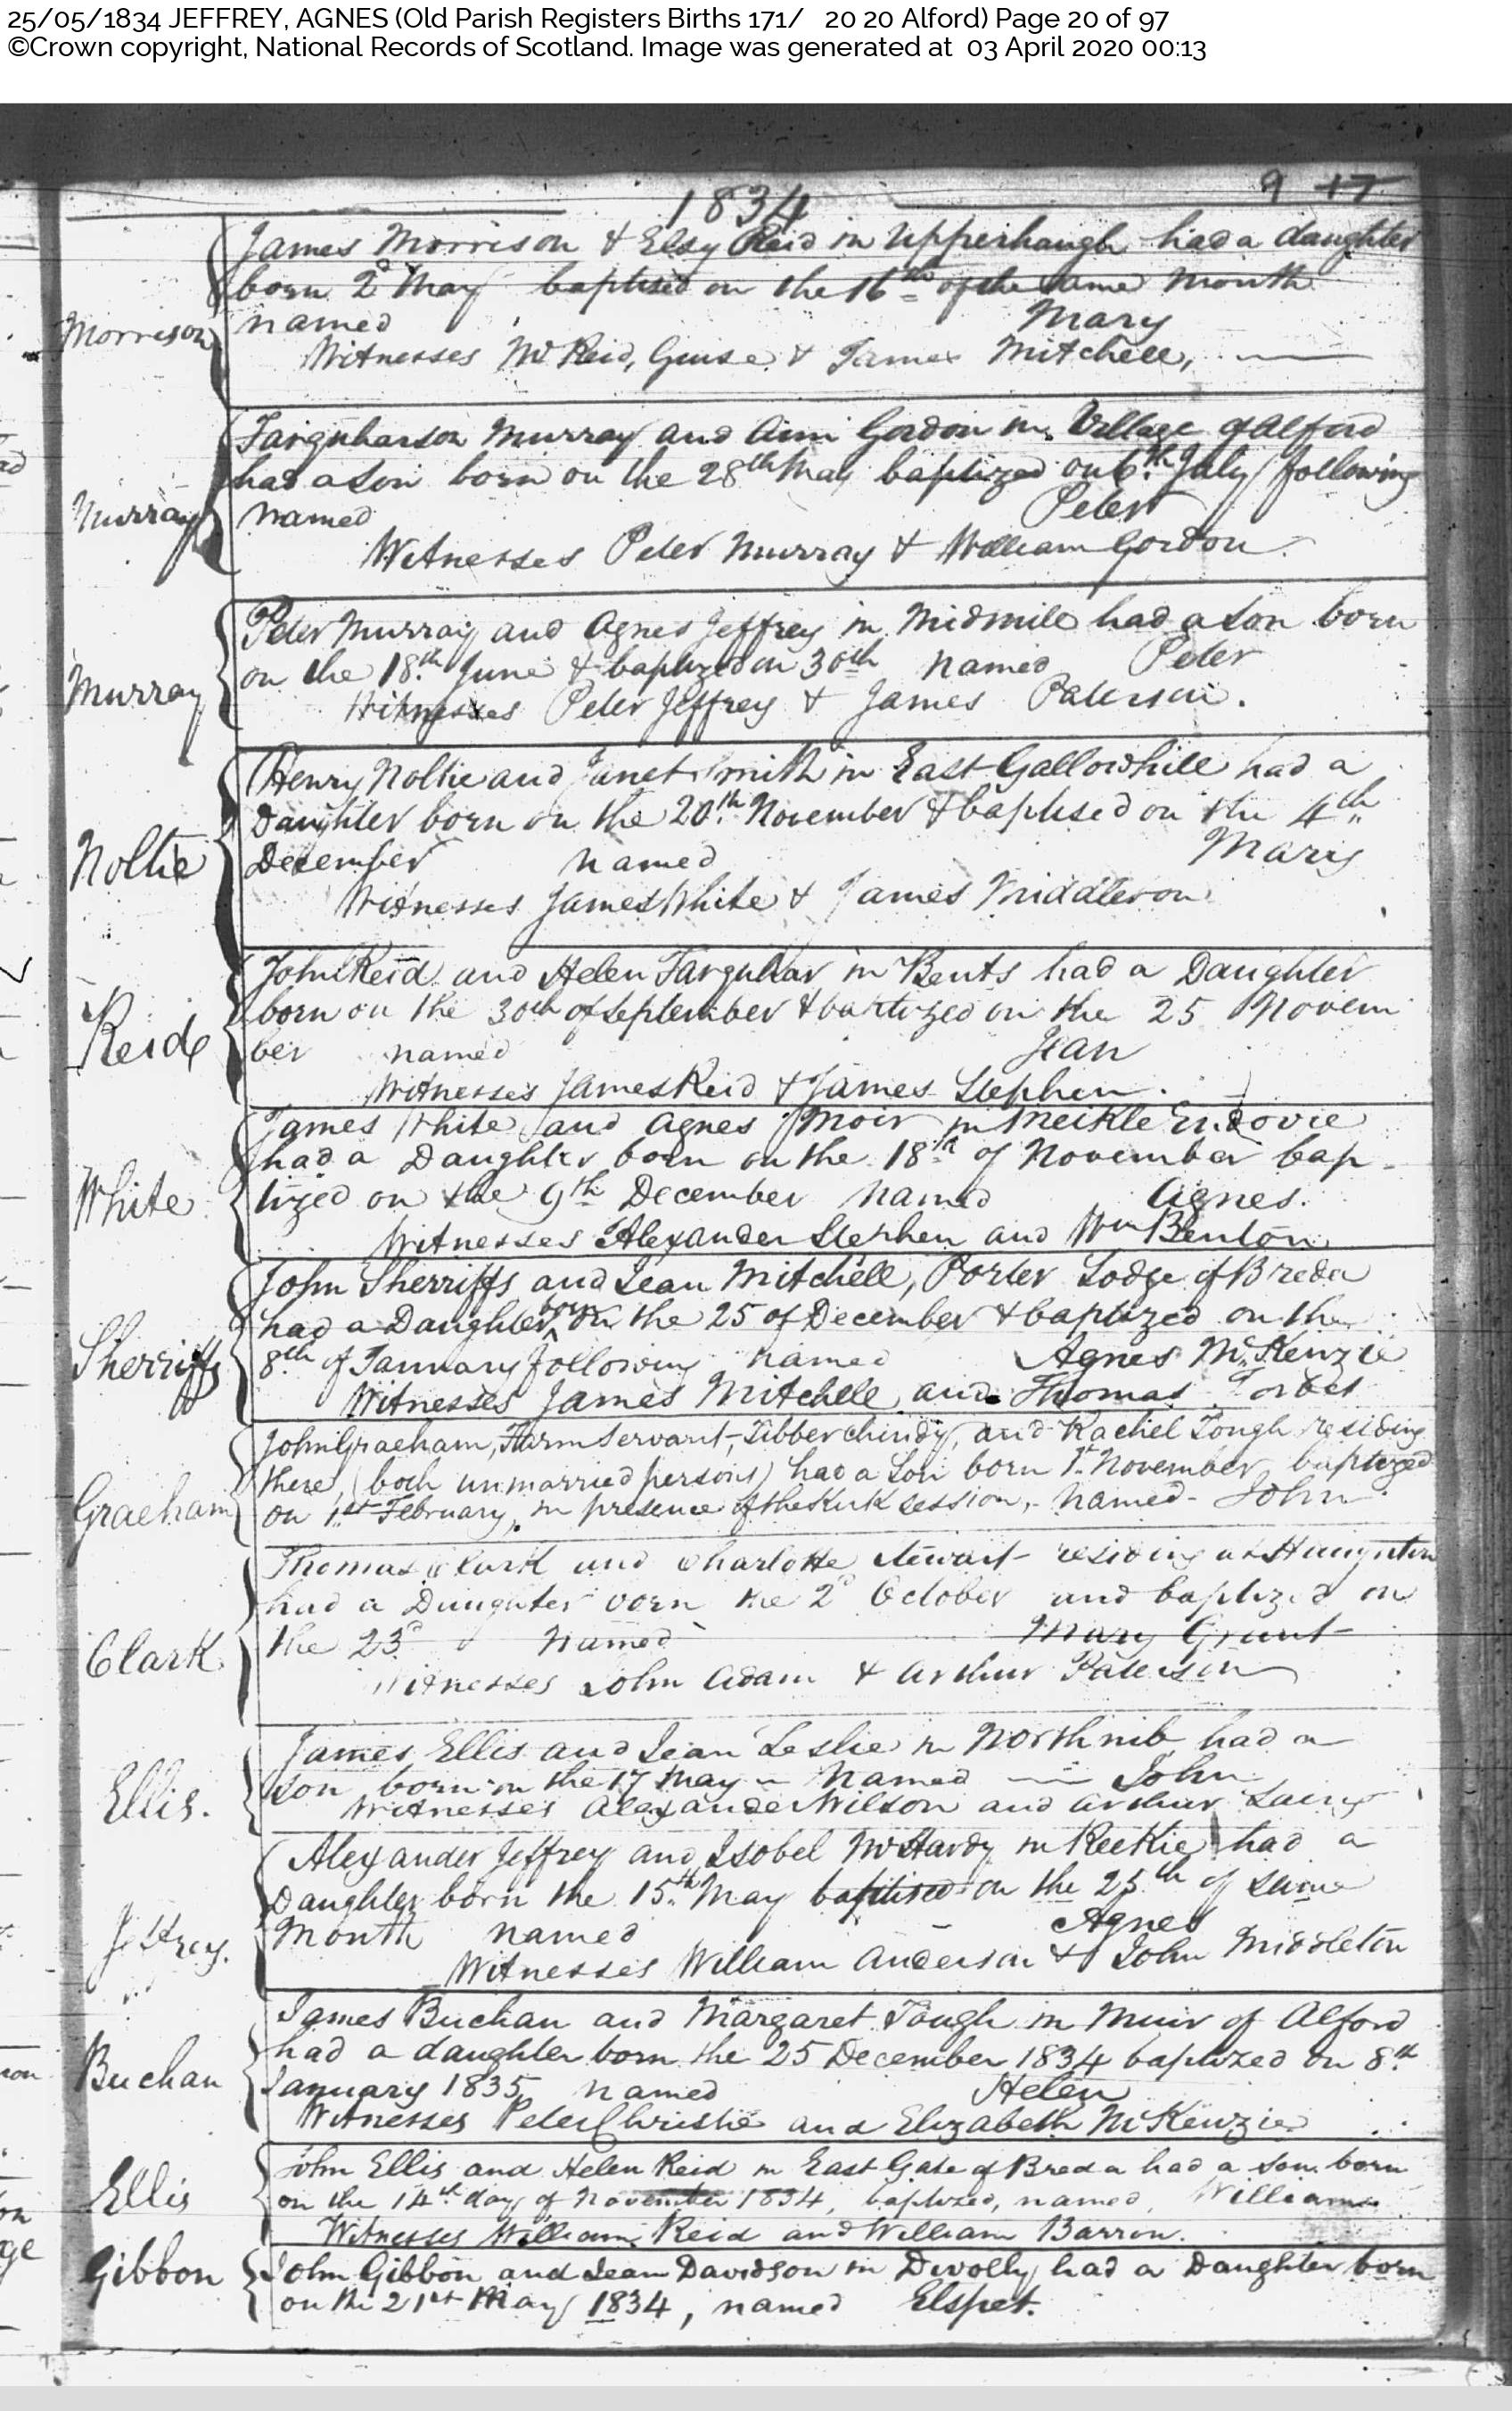 25/05/1834 JEFFREY, AGNES (Old Parish Registers Births 171/ 20 20 Alford) Page 20 of 97
©Crown copyright, National Records of Scotland. Image was generated at 03 April 2020 00:13
1834
James Morrison & Elsy Reid in Upperhaugh had a daughter
born 2d May baptised on the 16th of the same Month
Morrison named Mary
Witnesses Wm Reid, Guise & James Mitchell,
Farquharson Murray and Ann Gordon in Village of Alford
had a Son born on the 28th May baptized on 6th July following
Murray named Peter
Witnesses Peter Murray & William Gordon
Peter Murray and Agnes Jeffrey in Midmill had a Son born
Murray on the 18th June & baptized on 30th named Peter
Witnesses Peter Jeffrey & James Paterson.
Henry Noltie and Janet Smith in East Gallowhill had a
Daughter born on the 20th November & baptised on the 4th
Noltie December named Mary
Witnesses James White & James Middleton
John Reid and Helen Farquhar in Bents had a Daughter
born on the 30th of September & baptized on the 25 Novem
Reid ber named Jean
Witnesses James Reid & James Stephen.
James White and Agnes Moir in Meikle Endovie
had a Daughter born on the 18th of November bap-
White tized on the 9th December named Agnes.
Witnesses Alexander Stephen and Wm Benton
John Sherriffs and Jean Mitchell, Porter Lodge of Breda
had a Daughter born on the 25 of December & baptized on the
Sherriffs 8th of January following named Agnes McKenzie
Witnesses James Mitchell and Thomas Forbes
John Graeham, Farm Servant, Tibberchindy, and Rachel Tough residing
there, (both unmarried persons) had a Son born 1st November baptized
Graeham on 1st February, in presence of the Kirk session, - named - John
Thomas Clark and Charlotte Stewart residing at Haughton
had a Daughter born the 2d October and baptized on
Clark the 23d named Mary Grant
Witnesses John Adam & Arthur Paterson
James Ellis and Jean Leslie in Northnib had a
Ellis. son born on the 17 May named John
Witnesses Alexander Wilson and Arthur Laing
Alexander Jeffrey and Isobel McHardy in Reekie had a
Daughter born the 15th May baptised on the 25th of same
Jeffrey. Month named Agnes
Witnesses William Anderson & John Middleton
James Buchan and Margaret Tough in Muir of Alford
Buchan had a daughter born the 25 December 1834 baptized on 8th
January 1835 named Helen
Witnesses Peter Christie and Elizabeth McKenzie
John Ellis and Helen Reid in East Gate of Breda had a son born
Ellis on the 14th day of November 1834, baptized, named, William
Witnesses William Reid and William Barron.
Gibbon John Gibbon and Jean Davidson in Devolly had a Daughter born
on the 21st May 1834, named Elspet.